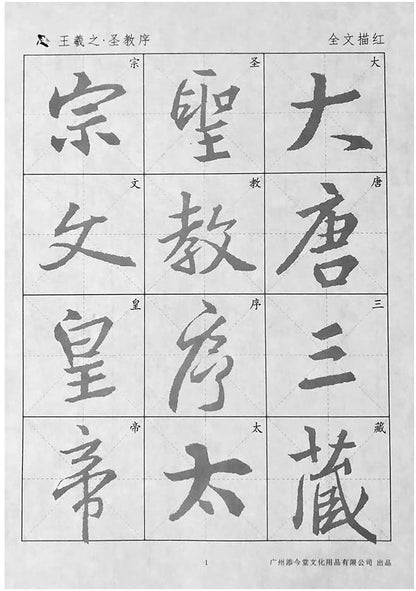 王羲之·圣教序
全文描红
大唐三藏
圣教序太
宗文皇帝
大
唐
三
藏
聖
教
序
太
宗
文
皇
帝
1
广州添今堂文化用品有限公司 出品